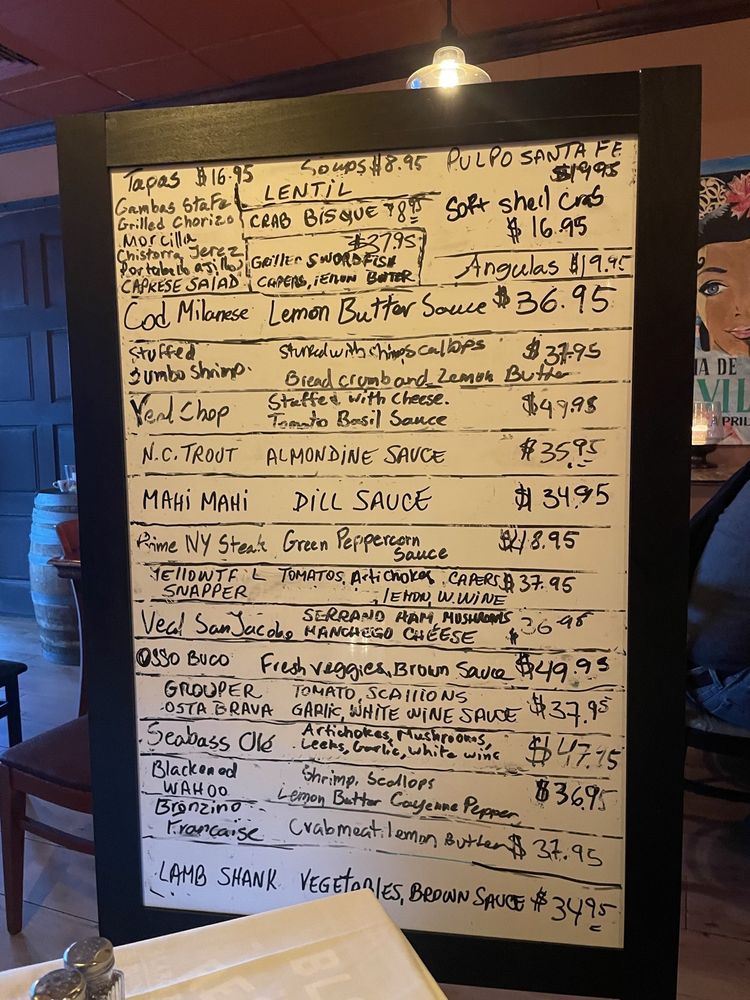 Tapas $16.95
Gambas StaFe
Grilled Chorizo
Morcilla
Chistorra Jerez
Portobello ajillo
CAPRESE SALAD
Soups $8.95
LENTIL
CRAB BISQUE $8.95
$37.95
GRILLED SWORDFISH
CAPERS, LEMON BUTTER
PULPO SANTA FE
$19.95
Soft Shell Crab
$16.95
Angulas $19.95
Cod Milanese Lemon Butter Sauce $36.95
Stuffed Stuffed with shrimp scallops $37.95
Jumbo Shrimp. Bread crumb and Lemon Butter
Veal Chop Stuffed with cheese. $49.95
Tomato Basil Sauce
N.C. TROUT ALMONDINE SAUCE $35.95
MAHI MAHI DILL SAUCE $34.95
Prime NY Steak Green Peppercorn 8.95
Sauce
YELLOWTAIL TOMATOS, Artichokes, CAPERS $37.95
SNAPPER LEMON, W.WINE
Veal San Jacobo SERRANO HAM, MUSHROOMS $36.95
MANCHEGO CHEESE
OSSO BUCO Fresh veggies, Brown Sauce $49.95
GROUPER TOMATO, SCALLIONS
OSTA BRAVA GARLIC, WHITE WINE SAUCE $37.95
Seabass Olé Artichokes, Mushrooms, $47.95
Leeks, Garlic, White wine
Blackened Shrimp, Scallops $36.95
WAHOO Lemon Butter Cayenne Pepper
Bronzino
Francaise Crabmeat, lemon Butter $37.95
LAMB SHANK VEGETABLES, BROWN SAUCE $34.95
IA DE
VIL
APRIL